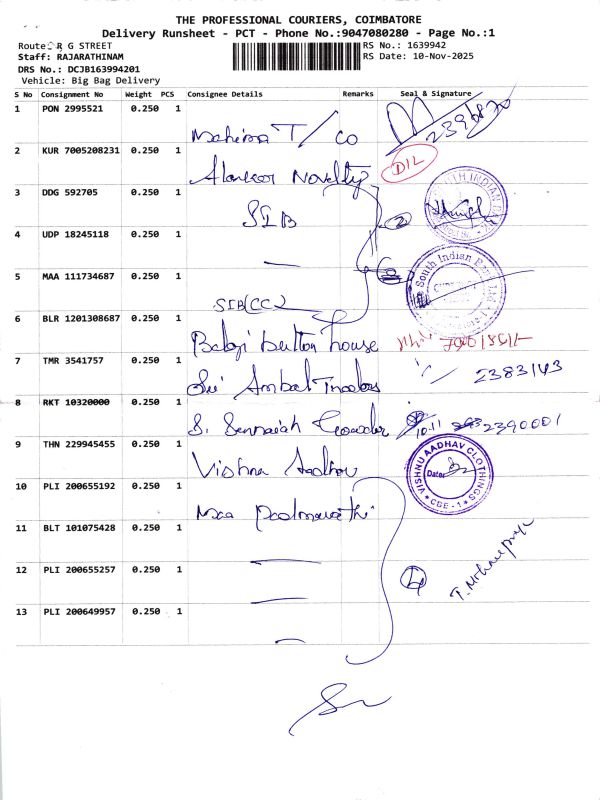 THE PROFESSIONAL COURIERS, COIMBATORE
Delivery Runsheet - PCT - Phone No.:9047080280 - Page No.:1
Route: R G STREET
RS No.: 1639942
Staff: RAJARATHINAM
RS Date: 10-Nov-2025
DRS No.: DCJB163994201
Vehicle: Big Bag Delivery
S No Consignment No Weight PCS Consignee Details Remarks Seal & Signature
1 PON 2995521 0.250 1 Mahima T/Co
2 KUR 7005208231 0.250 1 Alankar Novelty DIL
3 DDG 592705 0.250 1 SIB 2
4 UDP 18245118 0.250 1 —
5 MAA 111734687 0.250 1 SIB(CC) South Indian Bank Ltd
6 BLR 1201308687 0.250 1 Balaji button house
7 TMR 3541757 0.250 1 Sri Ambal Traders 2383143
8 RKT 10320000 0.250 1 S. Sennaiah Gowder 10.11 2390001
9 THN 229945455 0.250 1 Vishnu Aadhav VISHNU AADHAV CLOTHINGS * CBE - 1 * Date:
10 PLI 200655192 0.250 1 Maa Padmavathi
11 BLT 101075428 0.250 1 —
12 PLI 200655257 0.250 1 — 4
13 PLI 200649957 0.250 1 —